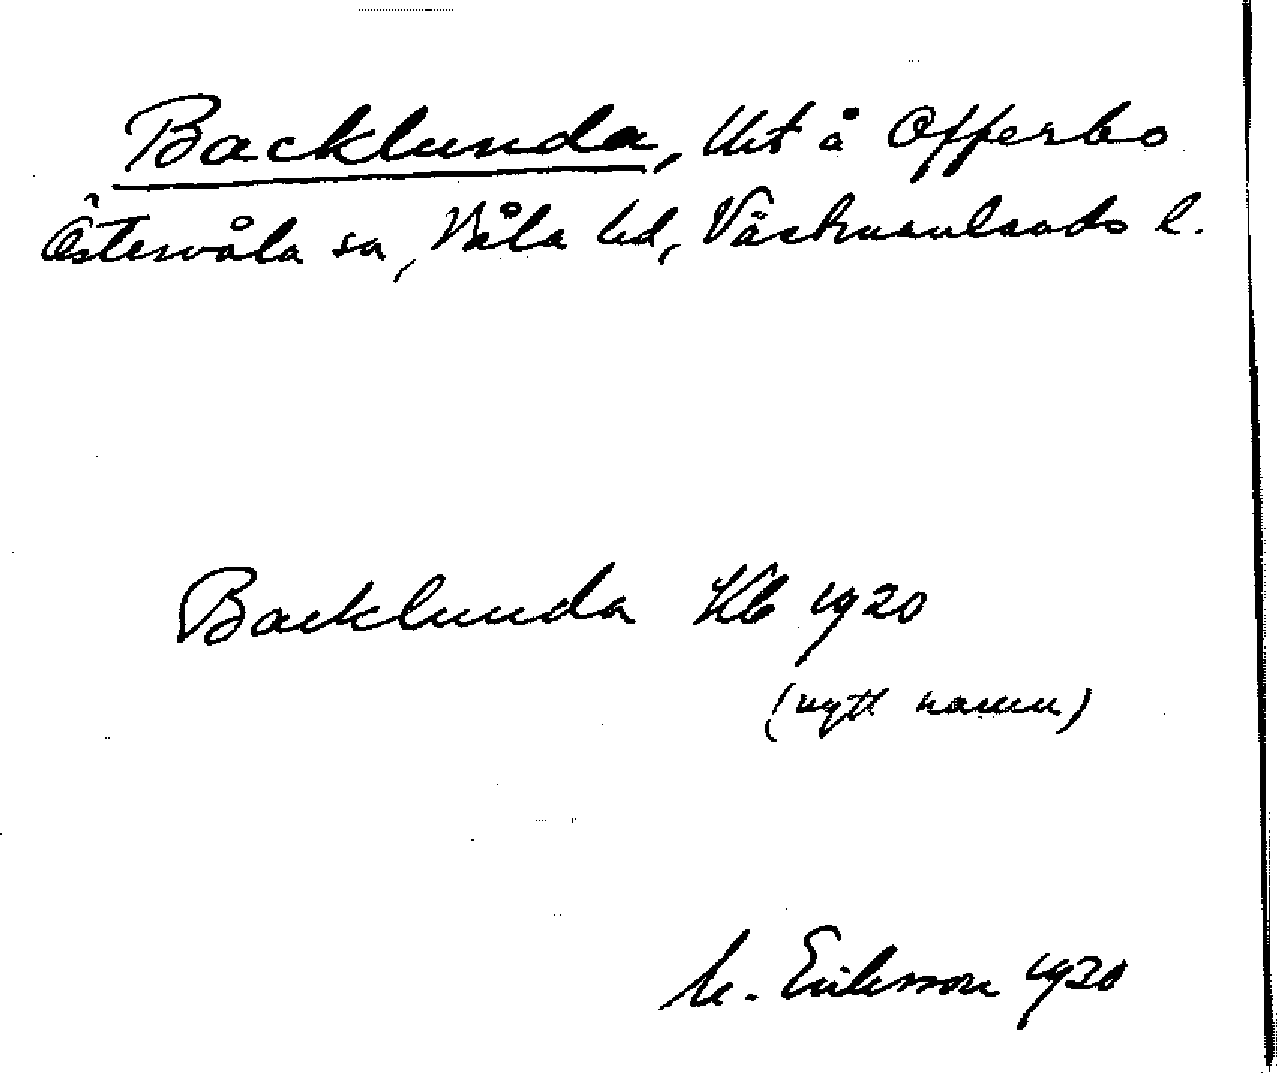 Backlunda, Utä å Offerbo
Östervåla sn, Våla hd, Västmanlands l.
Backlunda Kb 1920
(nytt namn)
M. Eriksson 1920